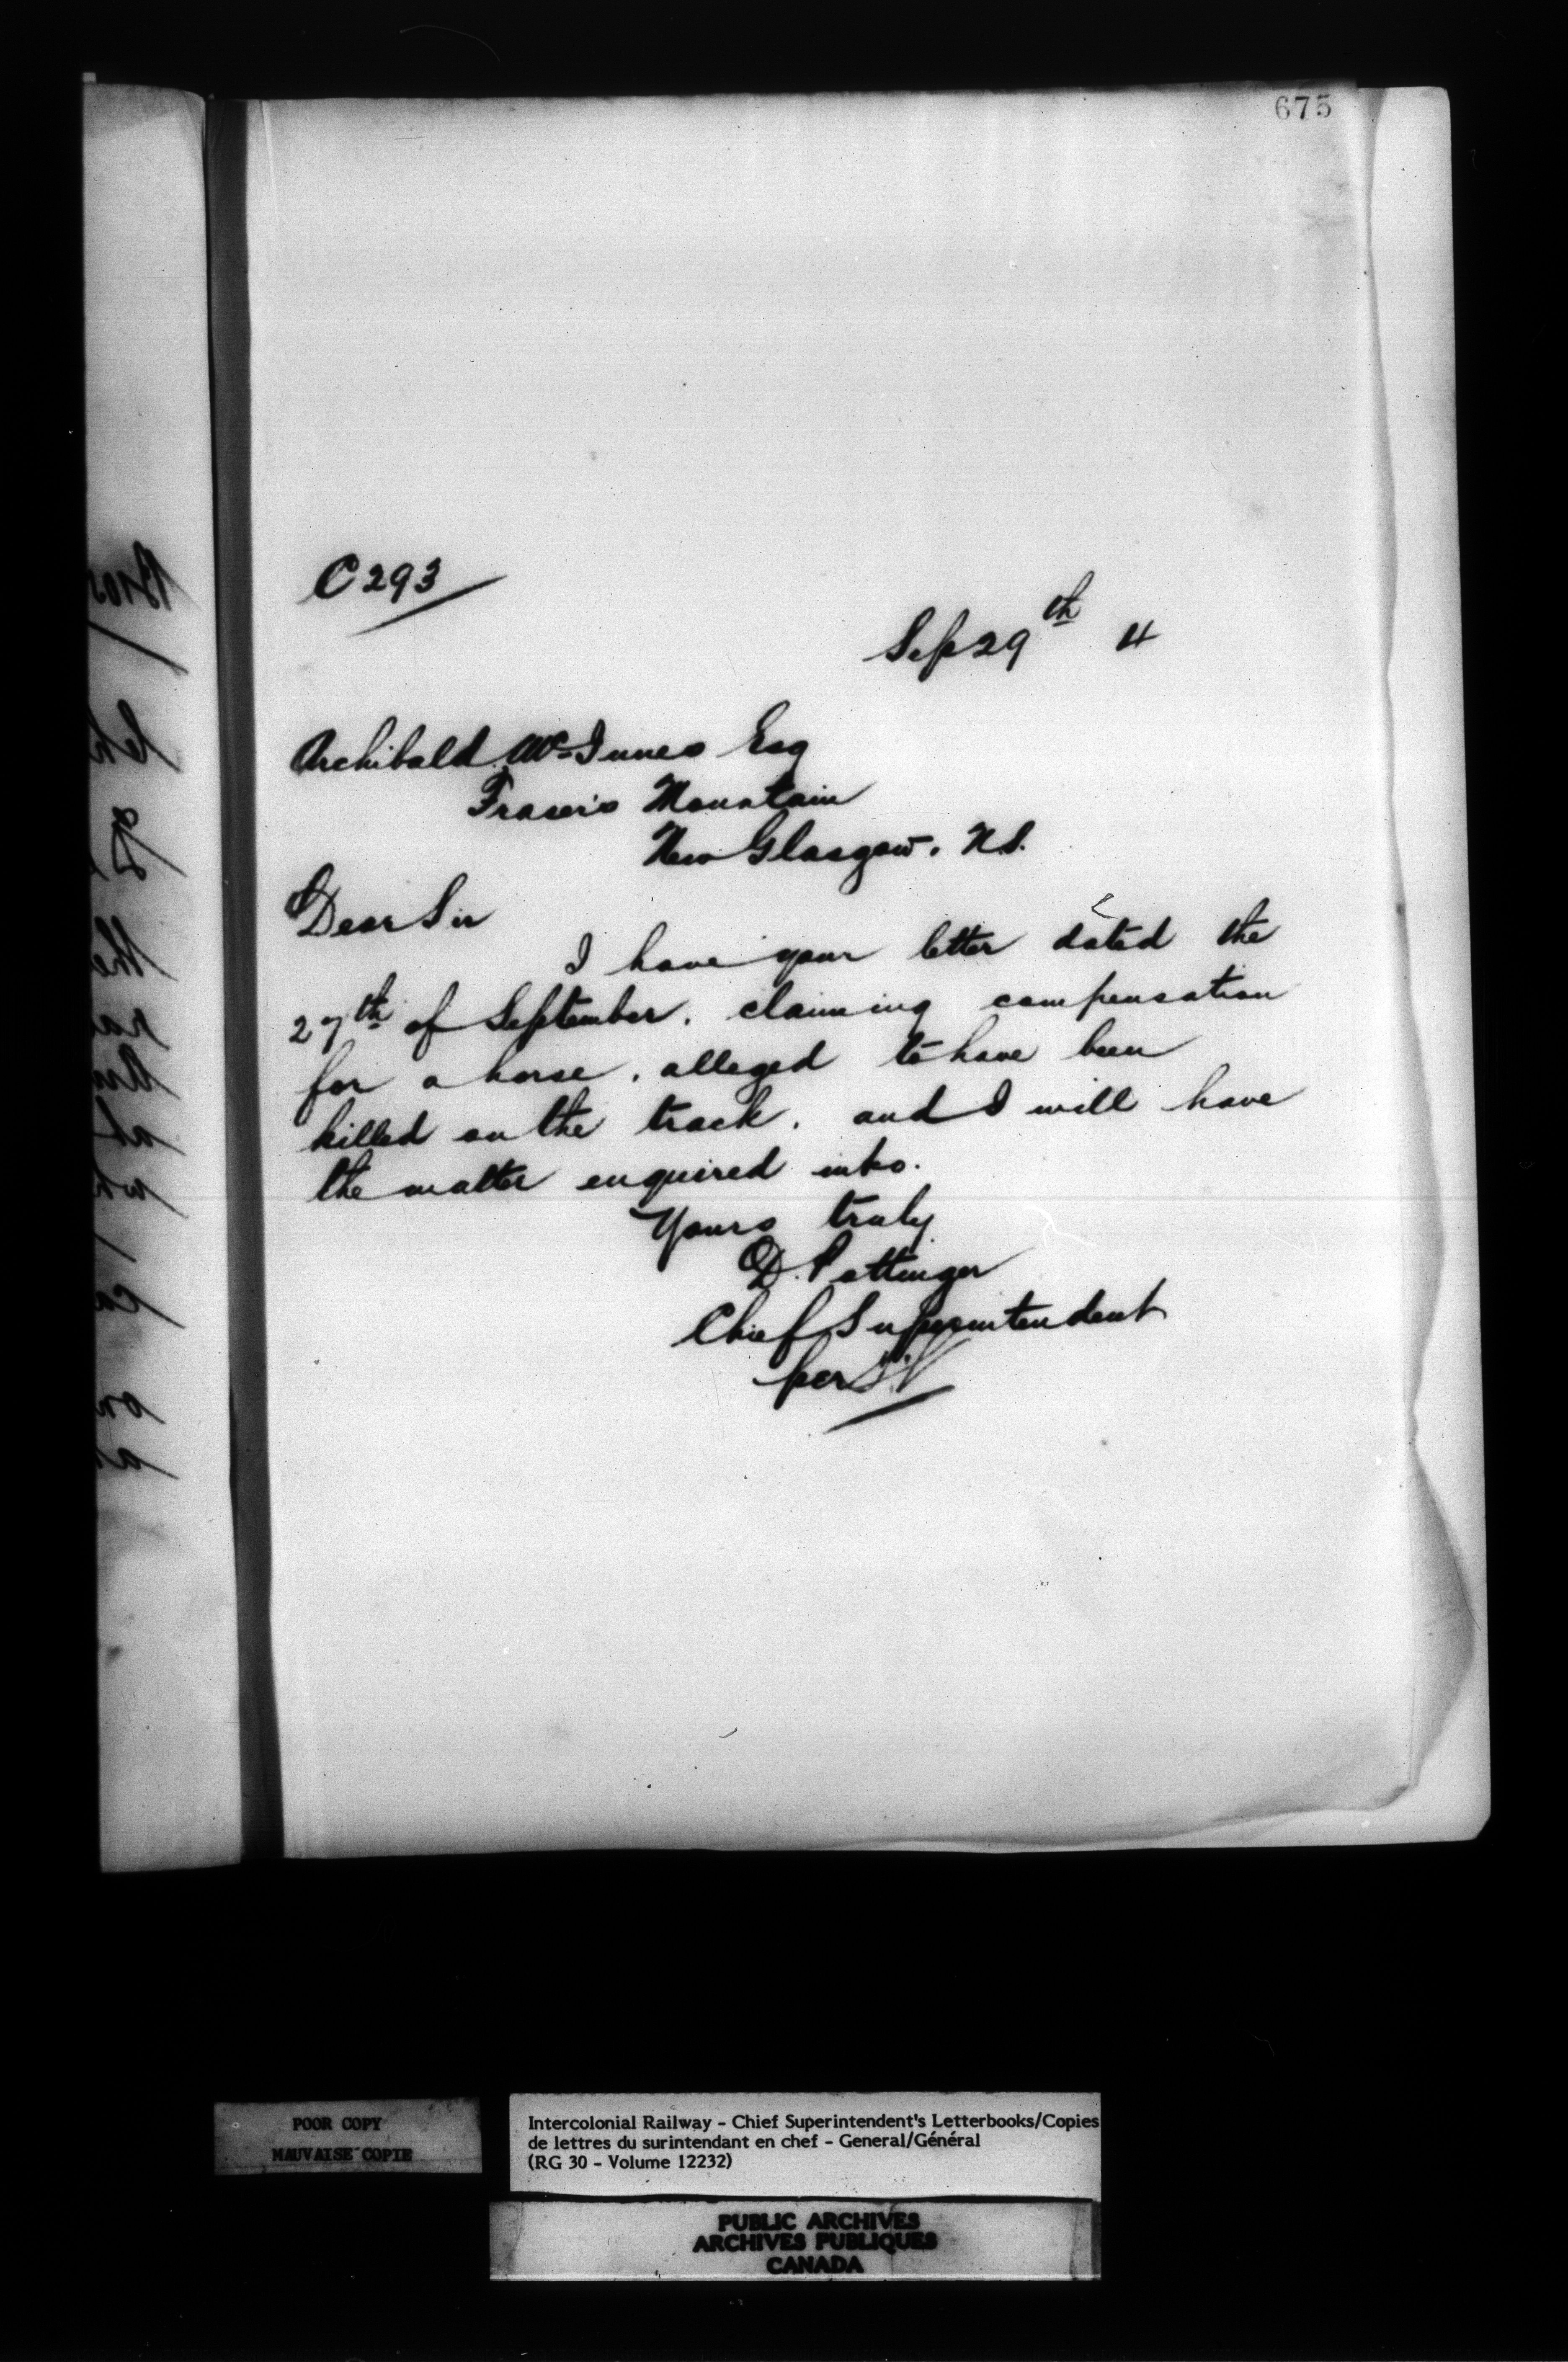 675
C 293
Sep 29th 4
Archibald McInnes Esq
Fraser's Mountain
New Glasgow. N.S.
Dear Sir
I have your letter dated the
27th of September. claiming compensation
for a horse. alleged to have been
killed on the track. and I will have
the matter enquired into.
Yours truly
D. Pottinger
Chief Superintendent
per
POOR COPY
MAUVAISE COPIE
Intercolonial Railway - Chief Superintendent's Letterbooks/Copies
de lettres du surintendant en chef - General/Général
(RG 30 - Volume 12232)
PUBLIC ARCHIVES
ARCHIVES PUBLIQUES
CANADA